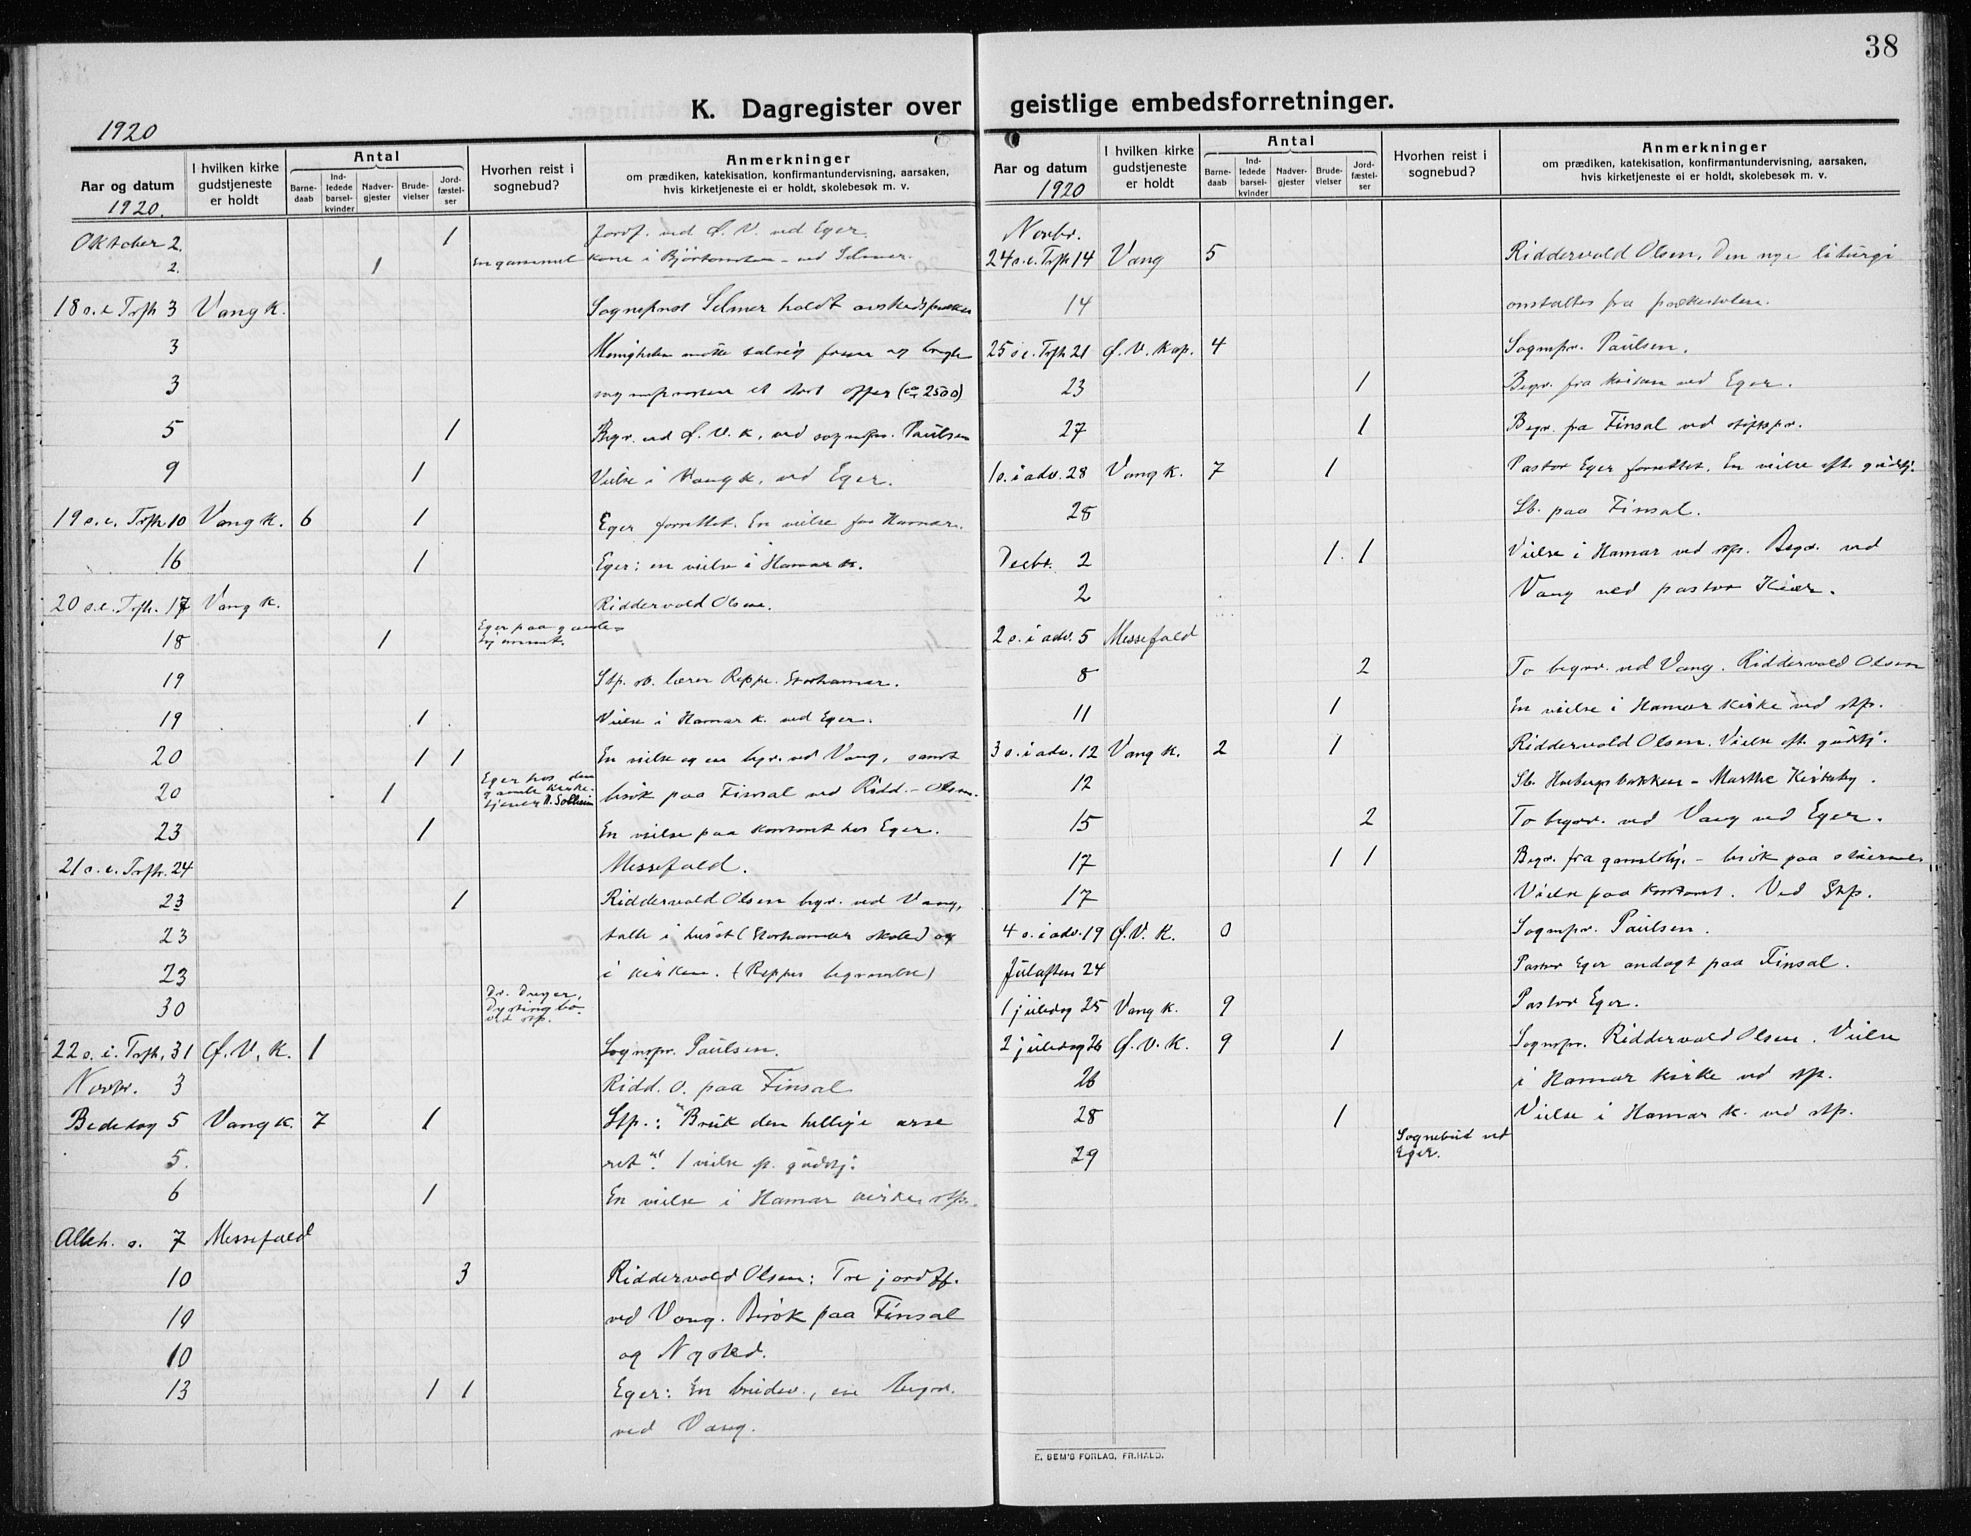 38
K. Dagregister over geistlige embedsforretninger.
1920
Aar og datum
1920.
I hvilken kirke gudstjeneste er holdt
Antal
Barnedaab
Indledede barselkvinder
Nadvergjester
Brudevielser
Jordfæstelser
Hvorhen reist i sognebud?
Anmerkninger
om prædiken, katekisation, konfirmantundervisning, aarsaken,
hvis kirketjeneste ei er holdt, skolebesøk m. v.
Oktober 2. 1 Jordf. ved Ø. V. ved Eger.
2. 1 En gammel kone i ved Selmer.
18 s.e. Trfh 3 Vang k. Sogneprest Selmer holdt
3 Menigheten møtte og
3 sogneprosten et stort offer (ca 2500)
5 1 Begr. ved Ø. V. k. ved sognepr. Paulsen
9 1 Vielse i Vang k. ved Eger.
19 s.e. Trfh. 10 Vang k. 6 1 Eger forrettet. En vielse fra Hamar.
16 1 Eger: en vielse i Hamar k.
20 s.e. Trfh. 17 Vang k. Riddervold Olsen.
18 1 Eger paa gamlehjemmet.
19 Stp. lærer Reppe. Storhamar.
19 1 Vielse i Hamar k. ved Eger.
20 1 1 En vielse og en begr. ved Vang, samt
20 1 Eger hos den gamle kirketjener Solheim besøk paa Finsal ved Ridd.-Olsen.
23 1 En vielse paa kontoret hos Eger.
21 s.e. Trfh. 24 Messefald.
23 1 Riddervold Olsen begr. ved Vang,
23 talte i huset (Storhamar skole) og
23 i kirken. (Reppes begravelse)
30 Dr. Dreyer, Dystingbo ved stp.
22 s. i. Trfh. 31 Ø. V. K. 1 Sognepr. Paulsen.
Novbr. 3 Ridd. O. paa Finsal
Bededag 5 Vang k. 7 1 Stp.: "Bruk den hellige arve
5. ret". 1 vielse e. gudstj.
6 1 En vielse i Hamar kirke stp.
Alleh. s. 7 Messefald
10 3 Riddervold Olsen: Tre jordff.
10 ved Vang. Besøk paa Finsal
10 og Nysted.
13 1 1 Eger: En brudev., en begr.
ved Vang.
Aar og datum
1920
I hvilken kirke gudstjeneste er holdt
Antal
Barnedaab
Indledede barselkvinder
Nadvergjester
Brudevielser
Jordfæstelser
Hvorhen reist i sognebud?
Anmerkninger
om prædiken, katekisation, konfirmantundervisning, aarsaken,
hvis kirketjeneste ei er holdt, skolebesøk m. v.
Novbr.
24 s.e. Trfh 14 Vang 5 Riddervold Olsen. Den nye liturgi
14 omtaltes fra prækestolen.
25 s.e. Trfh 21 Ø. V. Kap. 4 Sognepr. Paulsen.
23 1 Begr. fra kirken ved Eger.
27 1 Begr. fra Finsal ved stiftspr.
1 s. i adv. 28 Vang k. 7 1 Pastor Eger forrettet. En vielse eft. gudstj.
28 Sb. paa Finsal.
Decbr. 2 1 1 Vielse i Hamar ved stp. Begr. ved
2 Vang ved pastor Kiær.
2 s. i adv. 5 Messefald
8 2 To begrr. ved Vang. Riddervold Olsen
11 1 En vielse i Hamar kirke ved stp.
3 s. i adv. 12 Vang k. 2 1 Riddervold Olsen. Vielse eft. gudstj.
12 Sb. - Marthe Kirkeby.
15 2 To begrr. ved Vang ved Eger.
17 1 1 Begr. fra gamlehj. - besøk paa
17 Vielse paa kontoret. Ved Stp.
4 s. i adv. 19 Ø. V. K. 0 Sognepr. Paulsen.
Julaften 24 Pastor Eger andagt paa Finsal.
1 juledag 25 Vang k. 9 Pastor Eger.
2 juledag 26 Ø. V. K. 9 1 Sognepr. Riddervold Olsen. Vielse
26 i Hamar kirke ved stp.
28 1 Vielse i Hamar k. ved stp.
29 Sognebud ved Eger.
E. SEM'S FORLAG, FR.HALD.